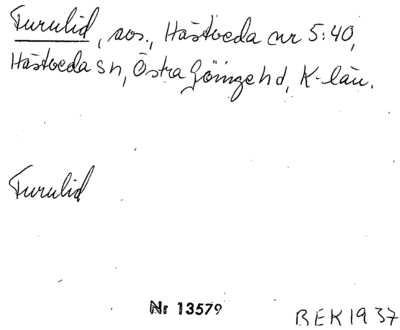 Furulid, avs., Hästveda nr 5:40,
Hästveda sn, Östra Göinge hd, K-län.
Furulid
Nr 13579
BEK 1937